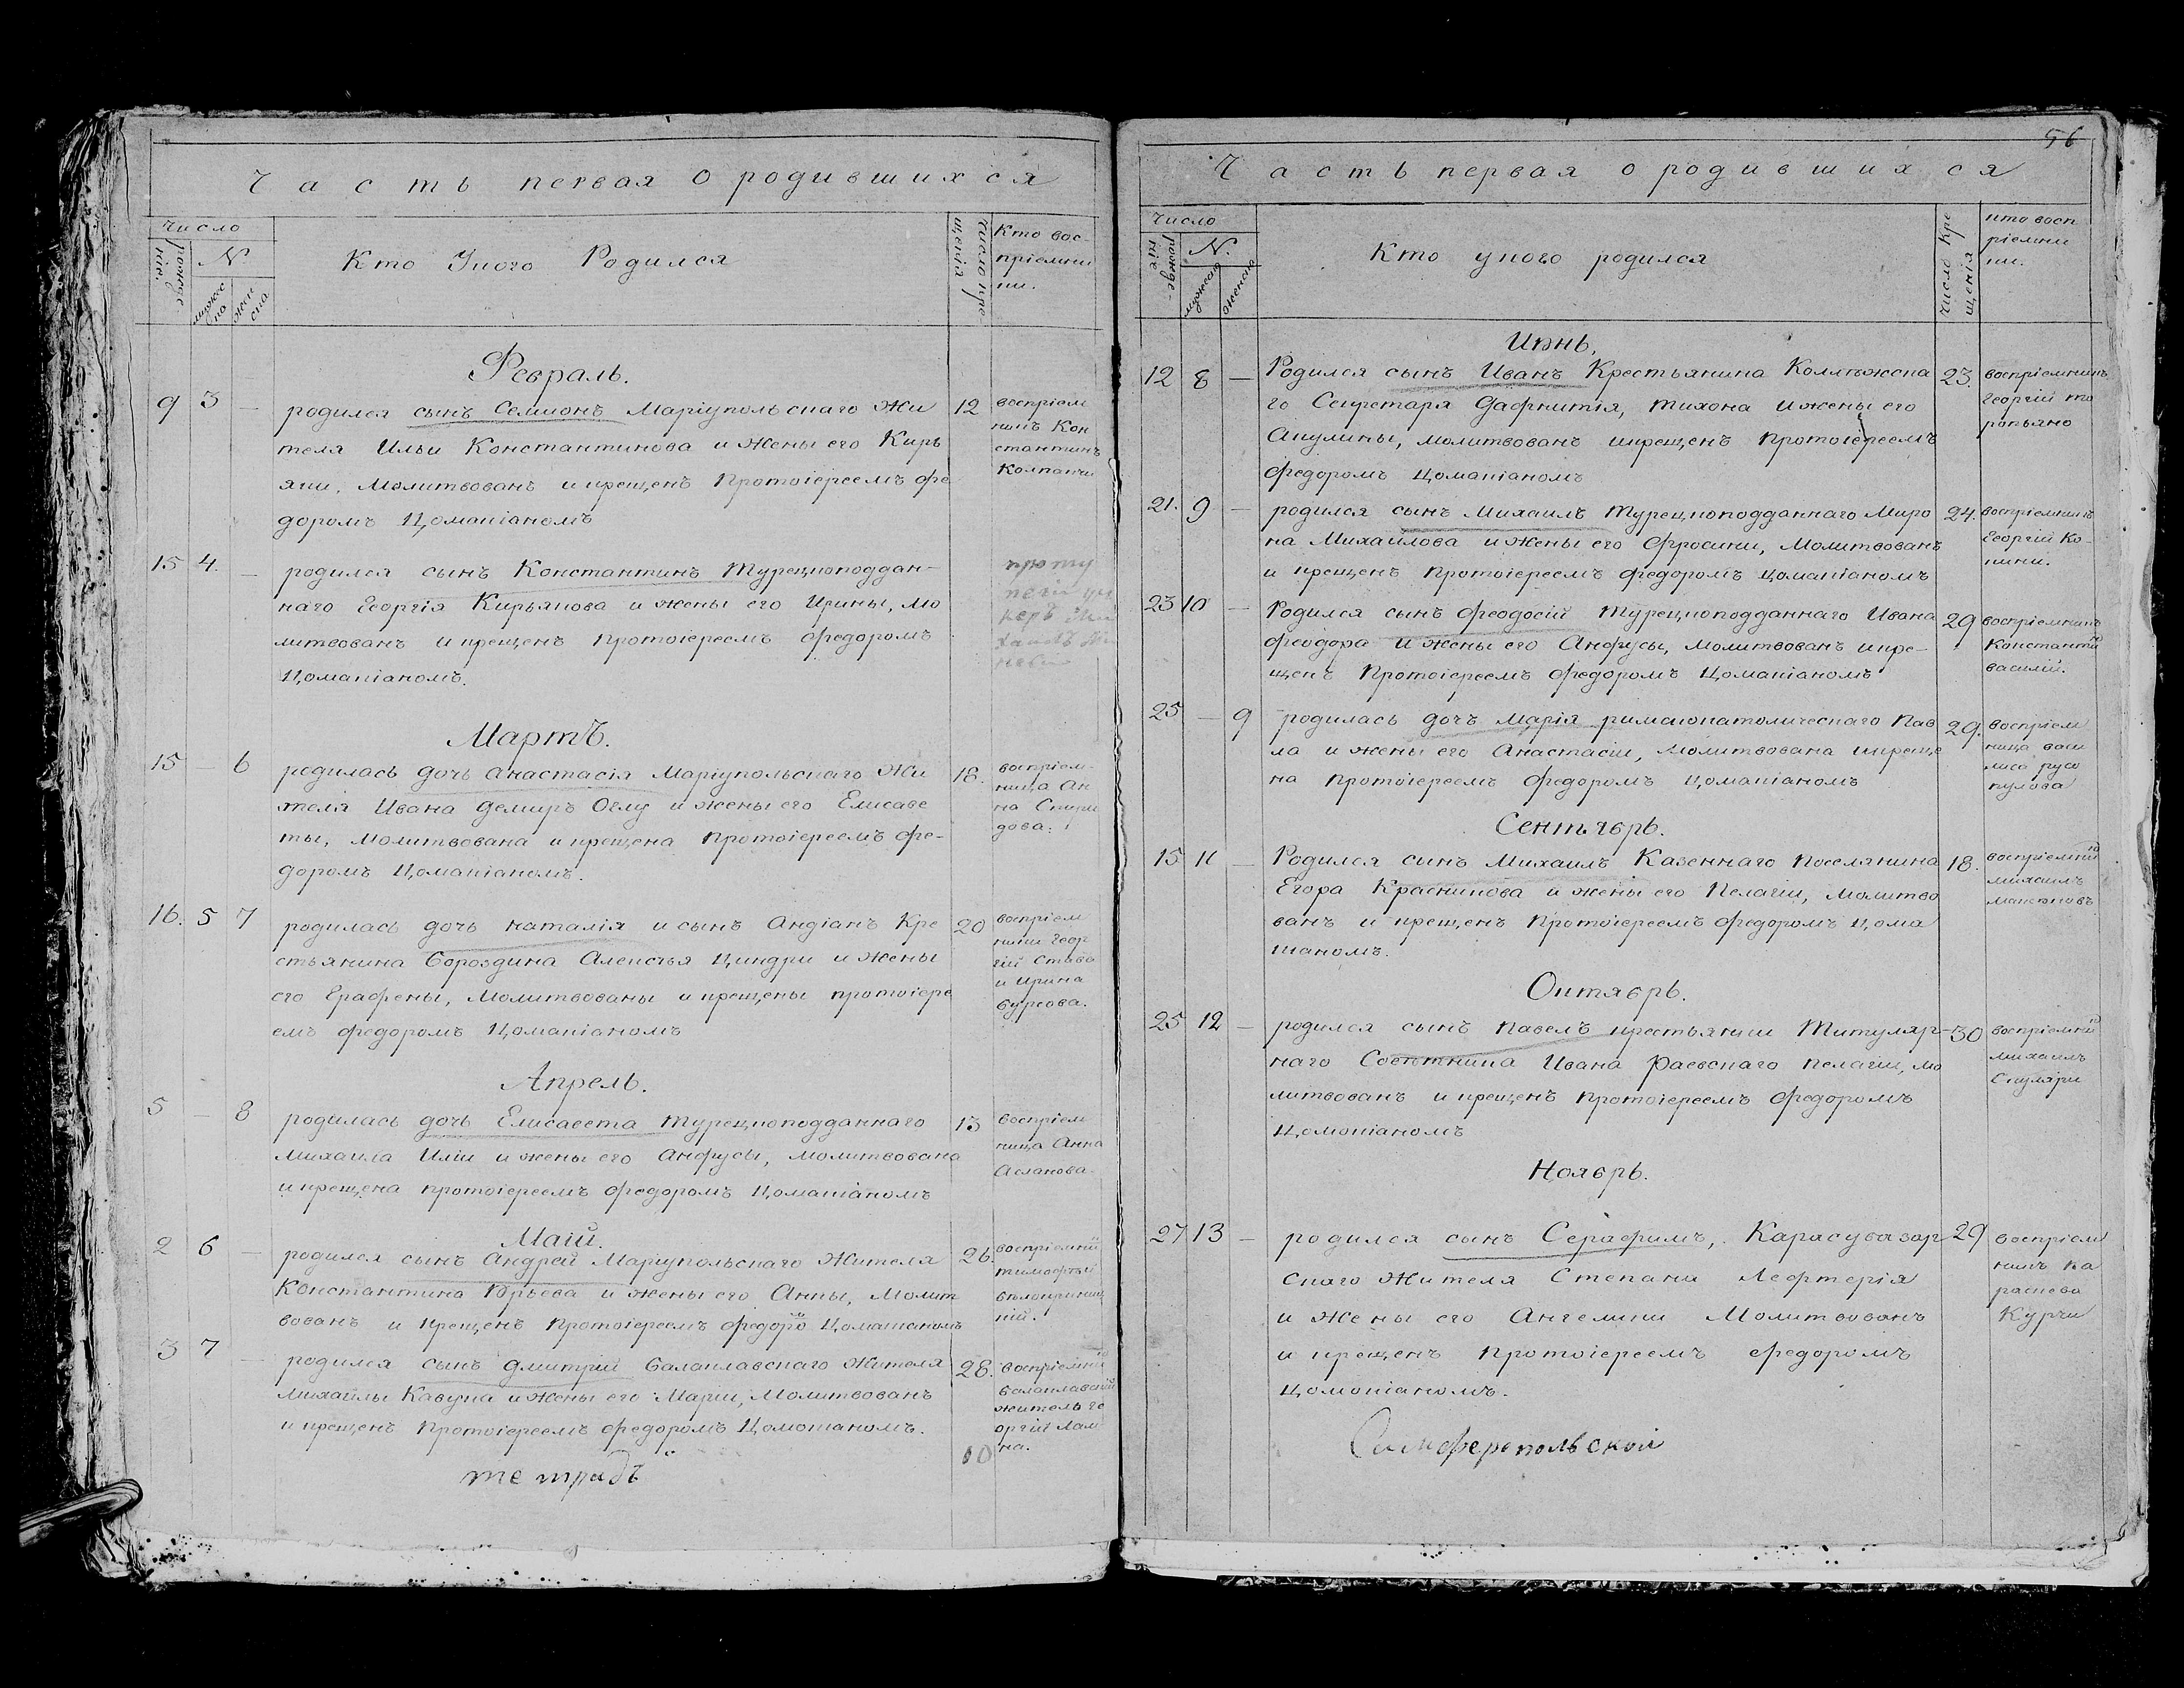 Часть первая о родившихся
Число
рождение.
N
мужеско
женска
Кто Укого Родился
число крещенія
Кто вос-
пріемни
ки.
Февраль.
9 3 — родился сынъ Семионъ Маріупольскаго Жи 12
теля Ильи Константинова и жены его Кирь
яки, Молитвованъ и крещенъ Протоіереемъ Фе
доромъ Цоманіаномъ
воспріем
никъ Кон
стантинъ
Колпакчи
15 4. — родился сынъ Константинъ Турецкоподдан-
наго Георгія Кирьякова и жены его Ирины, Мо
литвованъ и крещенъ Протоіереемъ Федоромъ
Цоманіаномъ.
Мартъ.
15 — 6 родилась дочь Анастасія Маріупольскаго Жи 18.
теля Ивана Демиръ Оглу и жены его Елисаве
ты, Молитвована и крещена Протоіереемъ Фе-
доромъ Цоманіаномъ.
воспріем-
ница Ан
на Спири
дова.
16. 5 7 родилась дочь наталія и сынъ Андіанъ Кре 20
стьянина Бороздина Алексѣя Циндри и жены
его Ерафены, Молитвованы и крещены протоіере
емъ Федоромъ Цоманіаномъ
воспріем
ники Геор
гій Става
и Ирина
Бурсова.
Апрель.
5 — 8 родилась дочь Елисавета Турецкоподданнаго 13
Михаила Иліи и жены его Анфусы, Молитвована
и крещена протоіереемъ Федоромъ Цоманіаномъ
воспріем
ница Анна
Асланова.
Маій.
2 6 — родился сынъ Андрей Маріупольскаго Жителя 26.
Константина Юрьева и жены его Анны, Молит
вованъ и крещенъ Протоіереемъ Федоромъ Цоманіаномъ
воспріемник
тимофѣй
3 7 — родился сынъ Дмитрий Балаклавскаго жителя 28.
Михаилы Кавуна и жены его Маріи, Молитвованъ
и крещенъ Протоіереемъ Федоромъ Цоманіаномъ.
воспріемник
Балаклавский
житель Ге
оргій Лам
на.
10
тетрадь
56
Часть первая о родившихся
Число
рожде-
ніе
N.
мужеска
женска
Кто укого родился
Число Кре
щенія
кто восп
ріемни
ки.
Июнь,
12 8 — Родился сынъ Иванъ Крестьянина Коллежска 23.
го Секретаря Дафнитія, Тихона и жены его
Акулины, молитвованъ и крещенъ Протоіереемъ
Федоромъ Цоманіаномъ
воспріемникъ
Георгій То
ропьяно
21. 9 — родился сынъ Михаилъ Турецкоподданнаго Миро 24.
на Михайлова и жены его Фросини, Молитвованъ
и крещенъ Протоіереемъ Федоромъ Цоманіаномъ
воспріемникъ
Георгій Ко-
кини.
23 10 — Родился сынъ Феодосій Турецкоподданнаго Ивана 29
Феодора и жены его Анфусы, молитвованъ и кре-
щенъ Протоіереемъ Федоромъ Цоманіаномъ
воспріемникъ
Константин
василій.
25 — 9 родилась дочъ Марія римскокатолическаго Пав 29.
ла и жены его Анастасіи, Молитвована и креще
на Протоіереемъ Федоромъ Цоманіаномъ
воспріем
ница васи
лиса русо
пулова
Сентябрь.
15 11 — Родился сынъ Михаилъ Казеннаго Поселянина 18.
Егора Красникова и жены его Пелагіи, Молитво
ванъ и крещенъ Протоіереемъ Федоромъ Цома
ніаномъ.
воспріемник
михаилъ
Октябрь.
25 12 — родился сынъ Павелъ крестьянки Титуляр- 30
наго Совѣтника Ивана Раевскаго пелагіи, мо
литвованъ и крещенъ Протоіереемъ Федоромъ
Цомоніаномъ
воспріемник
михаилъ
Скуляри
Ноябрь.
27 13 — родился сынъ Серафимъ, Карасубазар 29
скаго жителя Степани Лефтерія
и жены его Ангелики Молитвованъ
и крещенъ Протоіереемъ Федоромъ
Цомоніаномъ.
воспріем
никъ Па
раскева
Курчи
Симферопольской